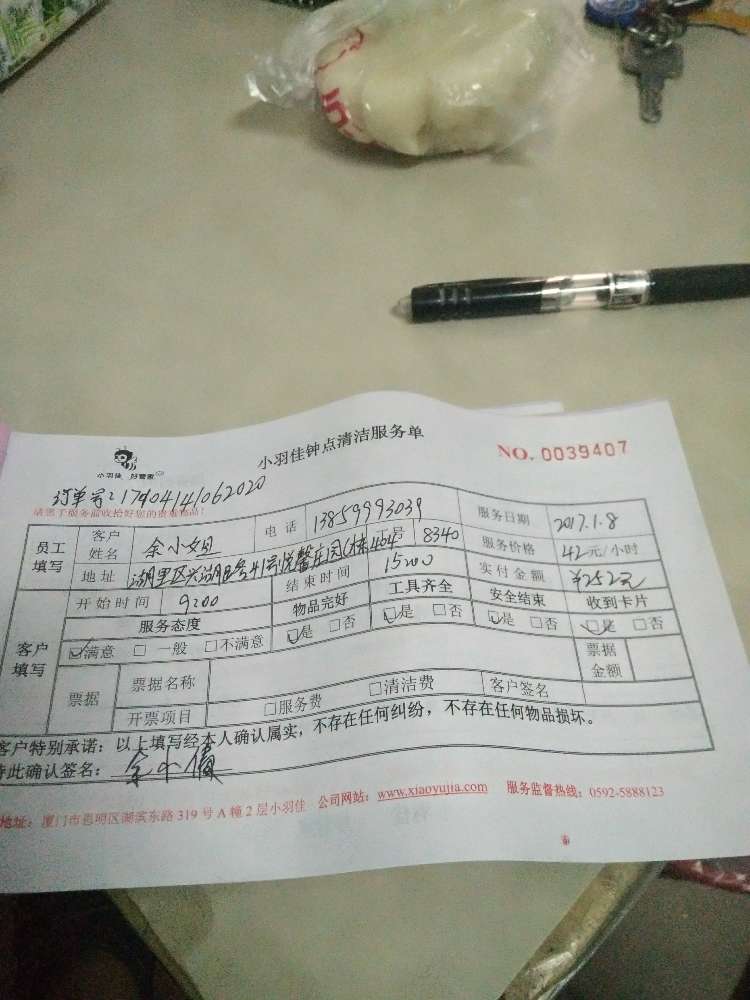 小羽佳 好管家
小羽佳钟点清洁服务单
NO. 0039407
订单号:17404141062020
员工填写
客户姓名 余小姐 电话 13859993039 服务日期 2017.1.8
地址 湖里区兴湖路41号悦馨庄园C栋404 工号 8340 服务价格 42元/小时
开始时间 9:00 结束时间 15:00 实付金额 ¥252元
客户填写
服务态度 物品完好 工具齐全 安全结束 收到卡片
☑满意 □一般 □不满意 ☑是 □否 ☑是 □否 ☑是 □否 ☑是 □否
票据 票据名称 票据金额
开票项目 □服务费 □清洁费 客户签名
客户特别承诺:以上填写经本人确认属实,不存在任何纠纷,不存在任何物品损坏。
特此确认签名:
地址:厦门市思明区湖滨东路319号A幢2层小羽佳 公司网站:www.xiaoyujia.com 服务监督热线:0592-5888123